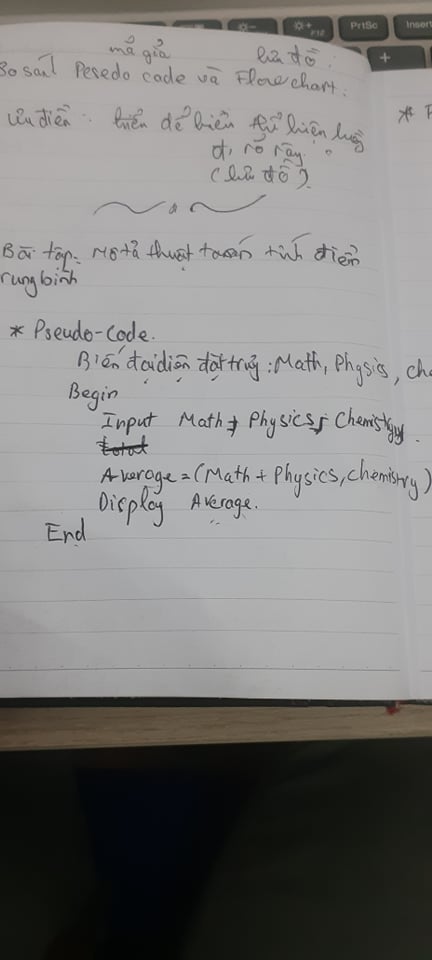 PrtSc
Insert
F12
+
mã giả lưu đồ.
So sánh Pesedo code và Flowchart:
ưu điển: hiển dể hiện thể hiện luồng
đi rỏ ràng.
(lưu đồ)
* P
Bài tập: Mô tả thuật toán tính điển
rung bình
* Pseudo-Code.
Biến đại diện đặt trưng: Math, Physics, che
Begin
Input Math, Physics, Chemistry.
total
Average = (Math + Physics, chemistry)
Display Average.
End